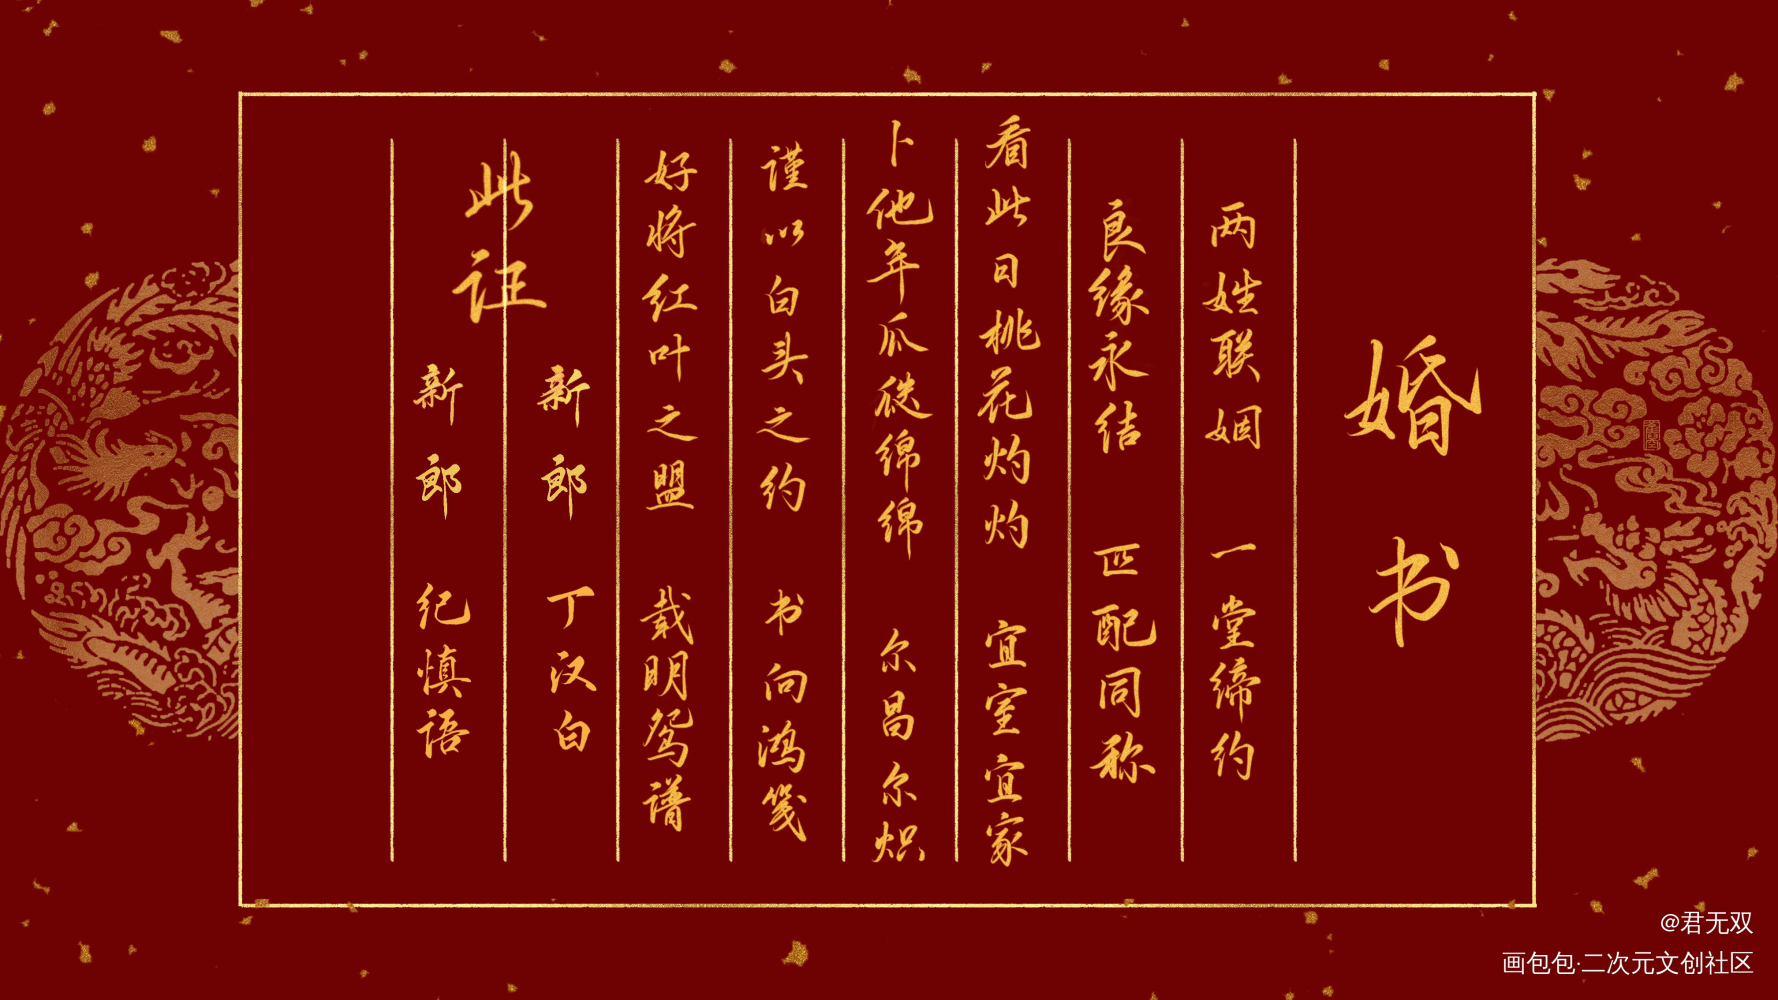 婚书
两姓联姻 一堂缔约
良缘永结 匹配同称
看此日桃花灼灼 宜室宜家
卜他年瓜瓞绵绵 尔昌尔炽
谨以白头之约 书向鸿笺
好将红叶之盟 载明鸳谱
此证
新郎 丁汉白
新郎 纪慎语
@君无双
画包包·二次元文创社区